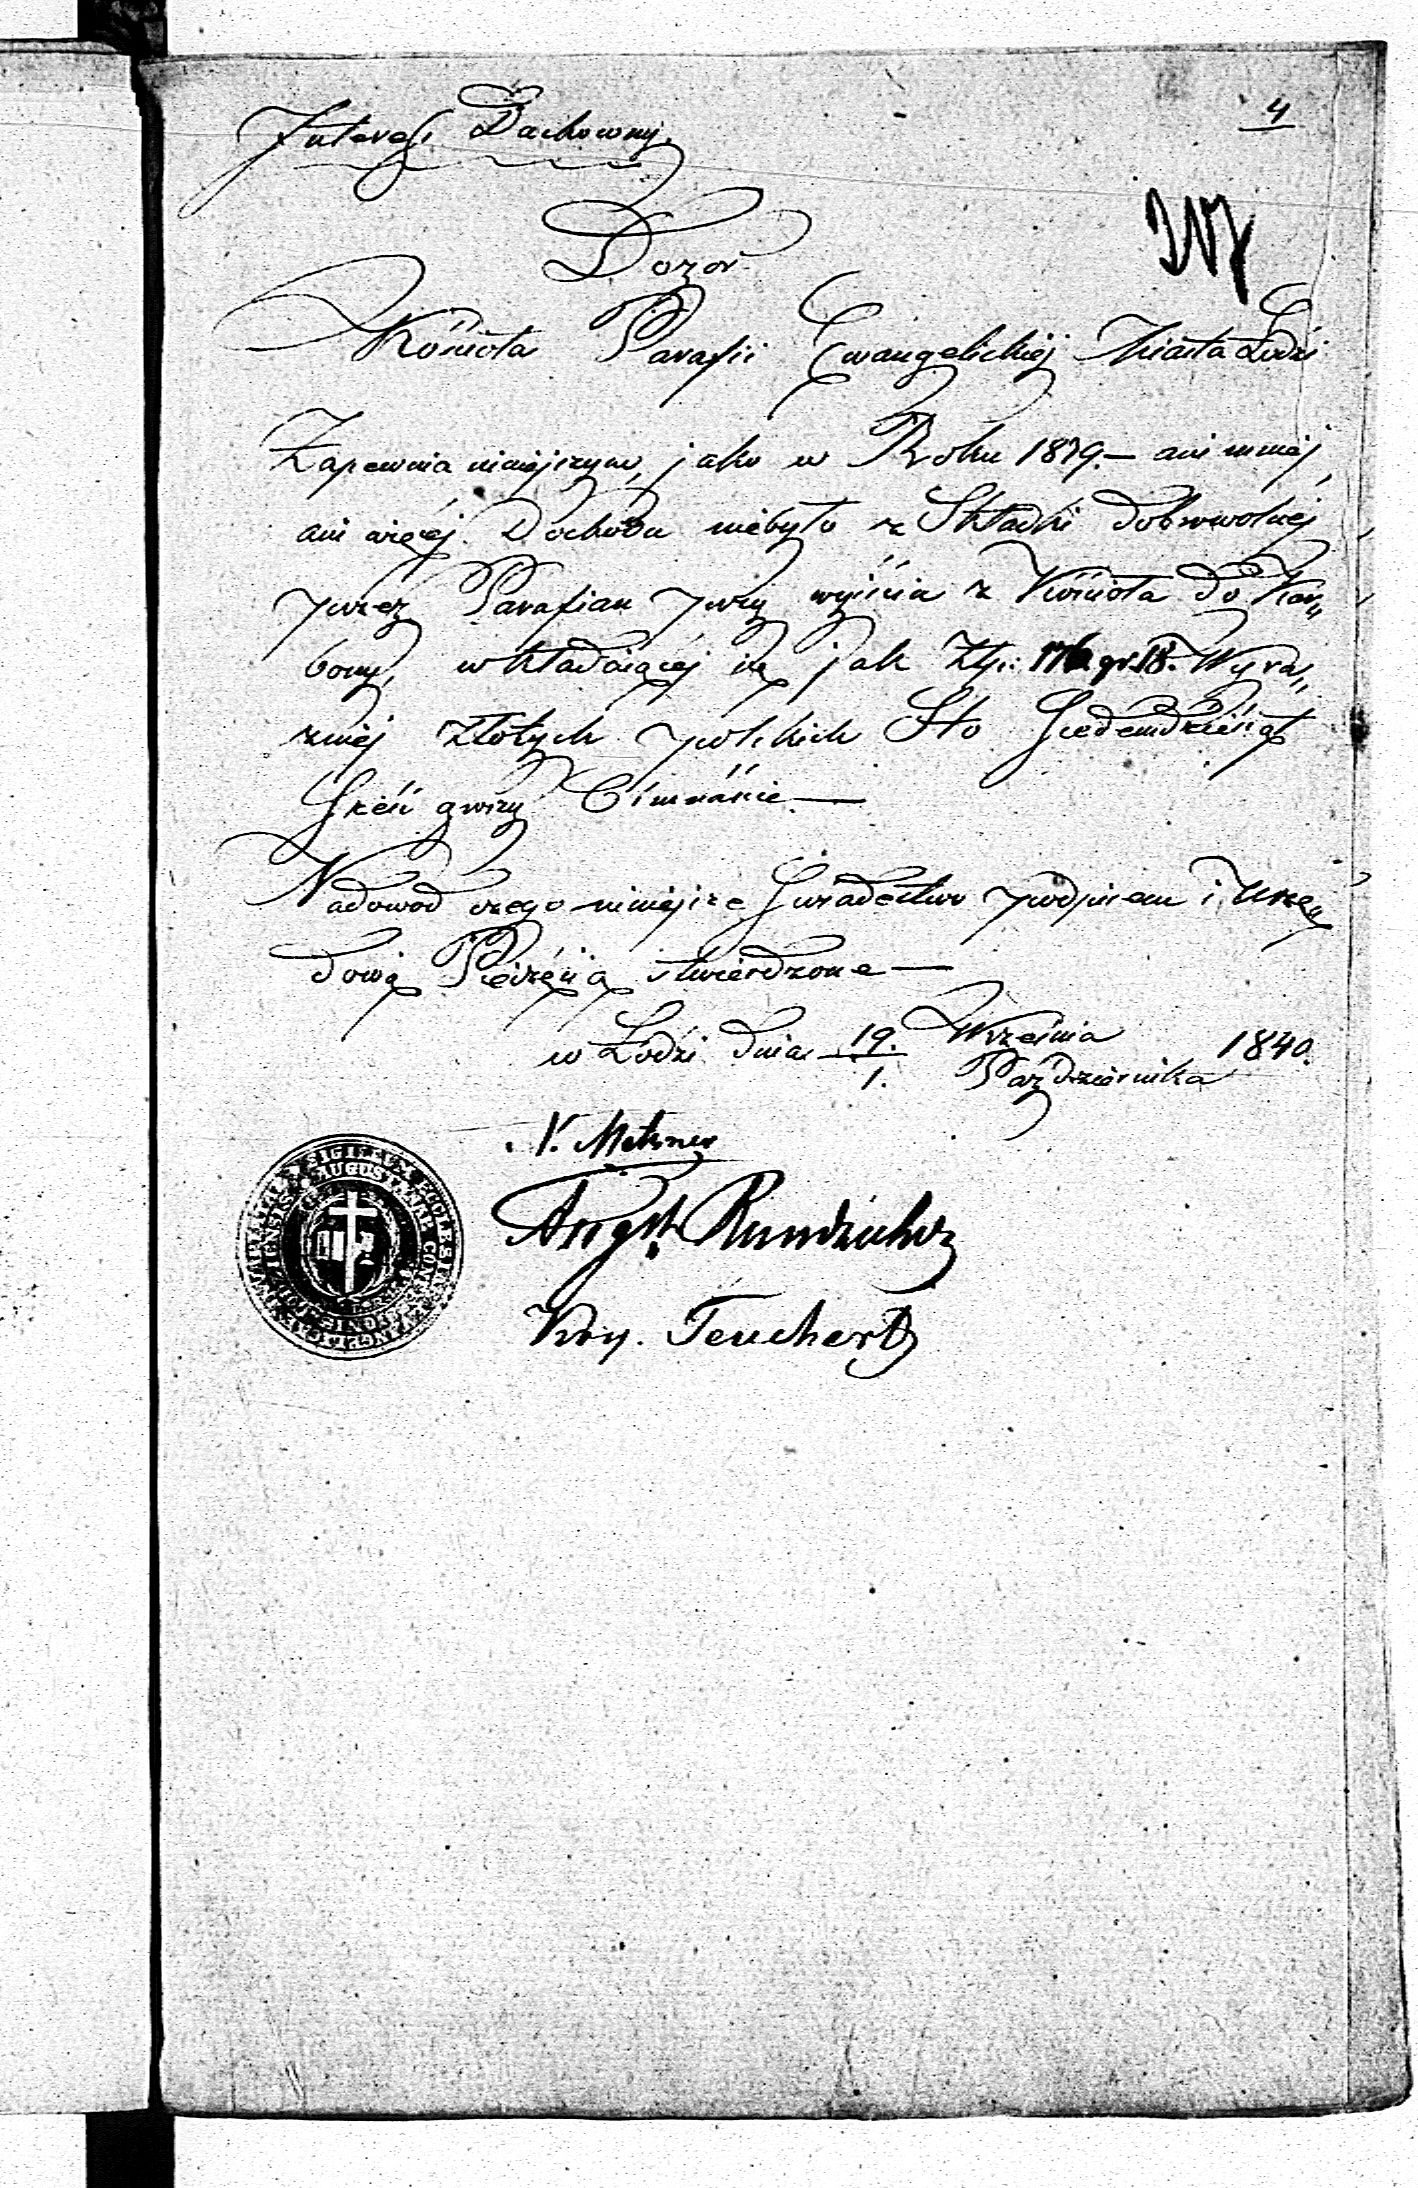 4
Interess Duchowny.
Dozor
Kościoła Parafii Ewangelickiéj Miasta Łodzi
Zapewnia niniejszym, jako w Roku 1839.— ani mniéj
ani więcéj Dochodu niebyło z Składki dobrowolnéj
przez Parafian przy wyiściu z Kościoła do Kar„
bony, wkładaiącéj się jak Złp: 176 gr. 18. Wyra„
zniéj złotych polskich Sto Siedemdziesiąt
Sześć groszy Ośmnaście —
Nadowod czego niniejsze Swiadectwo podpisem i Urzę„
dową Pieczęcią stwierdzone —
w Łodzi dnia 19. Września
1. Października 1840.
Metzner
Teuchert
SIGILLUM ECCLESIAE EVANG
AUGUST CON